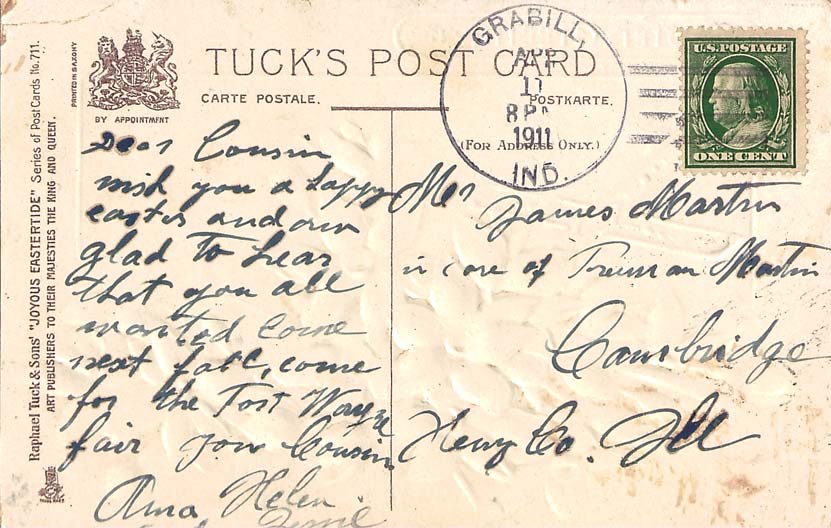 TUCK'S POST CARD
CARTE POSTALE.
POSTKARTE.
(FOR ADDRESS ONLY.)
BY APPOINTMENT
PRINTED IN SAXONY
Raphael Tuck & Sons' "JOYOUS EASTERTIDE" Series of Post Cards No. 711.
ART PUBLISHERS TO THEIR MAJESTIES THE KING AND QUEEN.
GRABILL,
APR
11
8 P
1911
IND.
U.S. POSTAGE
ONE CENT
Dear Cousin
wish you a happy
easter and am
glad to hear
that you all
wanted come
next fall, come
for the Fort Wayne
fair your Cousin
Helen
Mr James Martin
in care of Truman Martin
Cambridge
Henry Co. Ill